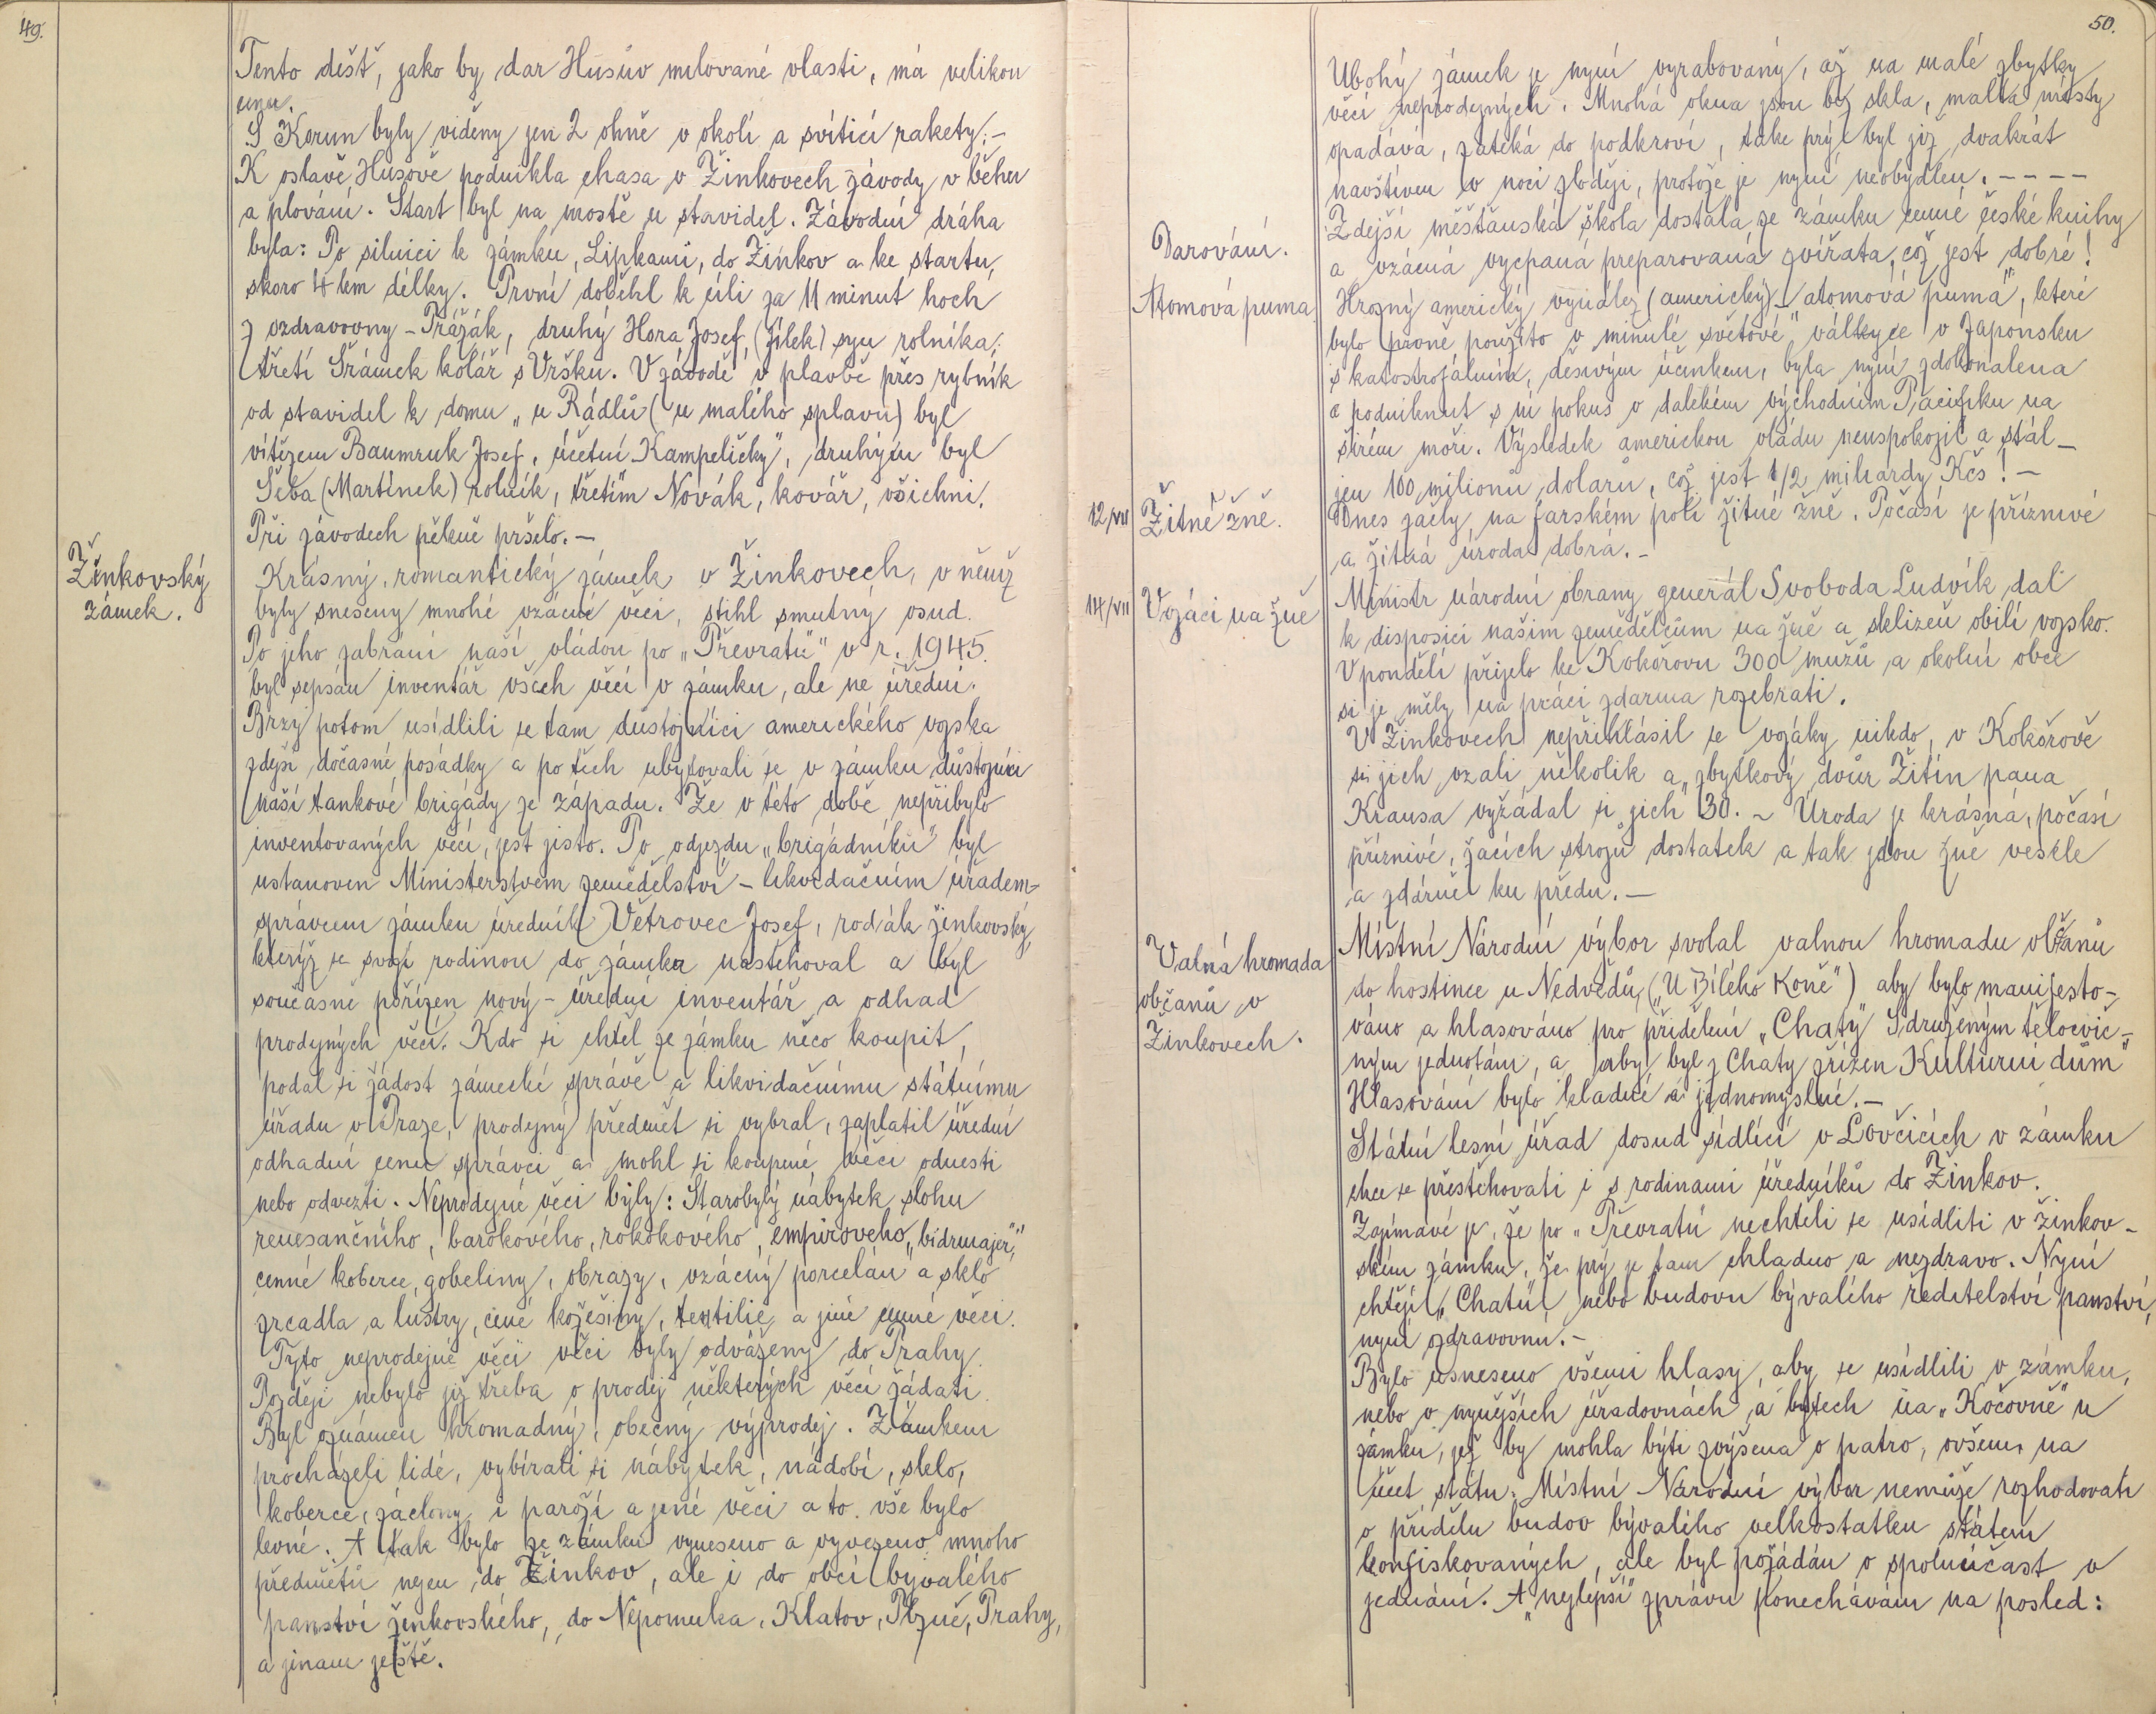 49.
Tento déšť, jako by dar Husův milované vlasti, má velikou
cenu.
S Korun byly viděny jen 2 ohně v okolí a svítící rakety.-
K oslavě Husově podnikla chasa v Žinkovech závody v běhu
a plování. Start byl na mostě u stavidel. Závodní dráha
byla: Po silnici k zámku, Lipkami, do Žinkov a ke startu,
skoro 4 km délky. První doběhl k cíli za 11 minut hoch
z ozdravovny - Pražák, druhý Hora Josef, (Jílek) syn rolníka,
třetí Šrámek kolář s Vršku. V závodě v plavbě přes rybník
od stavidel k domu „u Rádlů (u malého splavu) byl
vítězem Baumruk Josef, účetní „Kampeličky", druhým byl
Šeba (Martínek) rolník, třetím Novák, kovář, všichni.
Při závodech pěkně pršelo.-
Žinkovský
zámek.
Krásný, romantický zámek v Žinkovech, v němž
byly sneseny mnohé vzácné věci, stihl smutný osud.
Po jeho zabrání naší vládou po „Převratu" v r. 1945.
byl sepsán inventář všech věcí v zámku, ale ne úřední.
Brzy potom usídlili se tam důstojníci amerického vojska
zdejší dočasné posádky a po těch ubytovali se v zámku důstojníci
naší tankové brigády ze západu. Že v této době nepřibylo
inventovaných věcí, jest jisto. Po odjezdu „brigádníků" byl
ustanoven Ministerstvem zemědělství - likvidačním úřadem -
správcem zámku úředník Větrovec Josef, rodák žinkovský,
kterýž se svojí rodinou do zámku nastěhoval a byl
současně pořízen nový - úřední inventář a odhad
prodejných věcí. Kdo si chtěl ze zámku něco koupit,
podal si žádost zámecké správě a likvidačnímu státnímu
úřadu v Praze, prodejný předmět si vybral, zaplatil úřední
odhadní cenu správci a mohl si koupené věci odnesti
nebo odvezti. Neprodejné věci byly: Starobylý nábytek slohu
renesančního, barokového, rokokového, empírového, „bidrmajer",
cenné koberce, gobeliny, obrazy, vzácný porcelán a sklo
zrcadla a lustry, cenné kožešiny, textilie a jiné cenné věci.
Tyto neprodejné věci věci byly odváženy do Prahy.
Později nebylo již třeba o prodej některých věcí žádati.
Byl oznámen hromadný, obecný výprodej. Zámkem
procházeli lidé, vybírati si nábytek, nádobí, sklo,
koberce, záclony i paroží a jiné věci a to vše bylo
levné. A tak bylo ze zámku vyneseno a vyvezeno mnoho
předmětů nejen do Žinkov, ale i do obcí bývalého
panství žinkovského, do Nepomuka, Klatov, Plzně, Prahy,
a jinam ještě.
50.
Ubohý zámek je nyní vyrabovaný, až na malé zbytky
věcí neprodejných. Mnohá okna jsou bez skla, malta místy
opadává, zatéká do podkroví, také prý byl již dvakrát
navštíven v noci zloději, protože je nyní neobydlen.----
Darování.
Zdejší měšťanská škola dostala ze zámku cenné české knihy
a vzácná vycpaná preparovaná zvířata, což jest dobré!
Atomová puma
Hrozný americký vynález (americký) - „atomová puma", které
bylo prvně použito v minulé „světové" války ce v Japonsku
s katastrofálním, děsivým účinkem, byla nyní zdokonalena
a podniknut s ní pokus v dalekém východním Pacifiku na
širém moři. Výsledek americkou vládu neuspokojil a stál -
jen 100 milionů dolarů, což jest 1/2 miliardy Kčs! -
12/VII
Žitné žně.
Dnes začly na farském poli žitné žně. Počasí je příznivé
a žitná úroda dobrá.-
14/VII
Vojáci na žně
Ministr národní obrany generál Svoboda Ludvík dal
k disposici našim zemědělcům na žně a sklizeň obilí vojsko.
V pondělí přijelo ke Kokořovu 300 mužů a okolní obce
si je měly na práci zdarma rozebrati.
V Žinkovech nepřihlásil se vojáky nikdo, v Kokořově
si jich vzali několik a „zbytkový" dvůr Žitín pana
Krausa vyžádal si jich 30. ~ Úroda je krásná, počasí
příznivé, žacích strojů dostatek a tak jdou žně vesele
a zdárně ku předu.-
Valná hromada
občanů v
Žinkovech.
Místní Národní výbor svolal valnou hromadu občanů
do hostince u Nedvědů, („U Bílého Koně") aby bylo manifesto-
váno a hlasováno pro přidělení „Chaty" Sdruženým tělocvič-
ným jednotám, a aby byl z Chaty zřízen „Kulturní dům"
Hlasování bylo kladné a jednomyslné.-
Státní lesní úřad dosud sídlící v Lovčicích v zámku
chce se přestěhovati i s rodinami úředníků do Žinkov.
Zajímavé je, že po „Převratu" nechtěli se usídliti v žinkov-
ském zámku, že prý je tam chladno a nezdravo. Nyní
chtějí „Chatu", nebo budovu bývalého ředitelství panství,
nyní ozdravovnu.-
Bylo usneseno všemi hlasy, aby se usídlili v zámku,
nebo v nynějších úřadovnách a bytech na „Kočovně" u
zámku, jež by mohla býti zvýšena o patro, ovšem, na
účet státu. Místní Národní výbor nemůže rozhodovati
o přídělu budov bývalého velkostatku státem
konfiskovaných, ale byl požádán o spoluúčast v
jednání. A „nejlepší" zprávu ponechávám na posled: